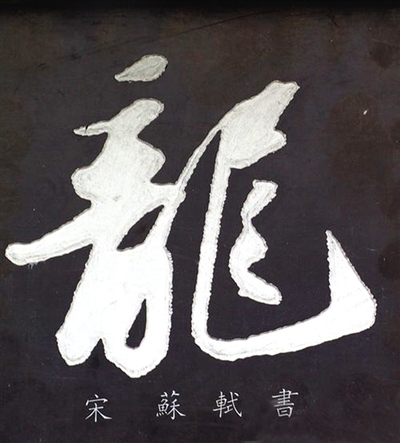 龍
宋 蘇軾書